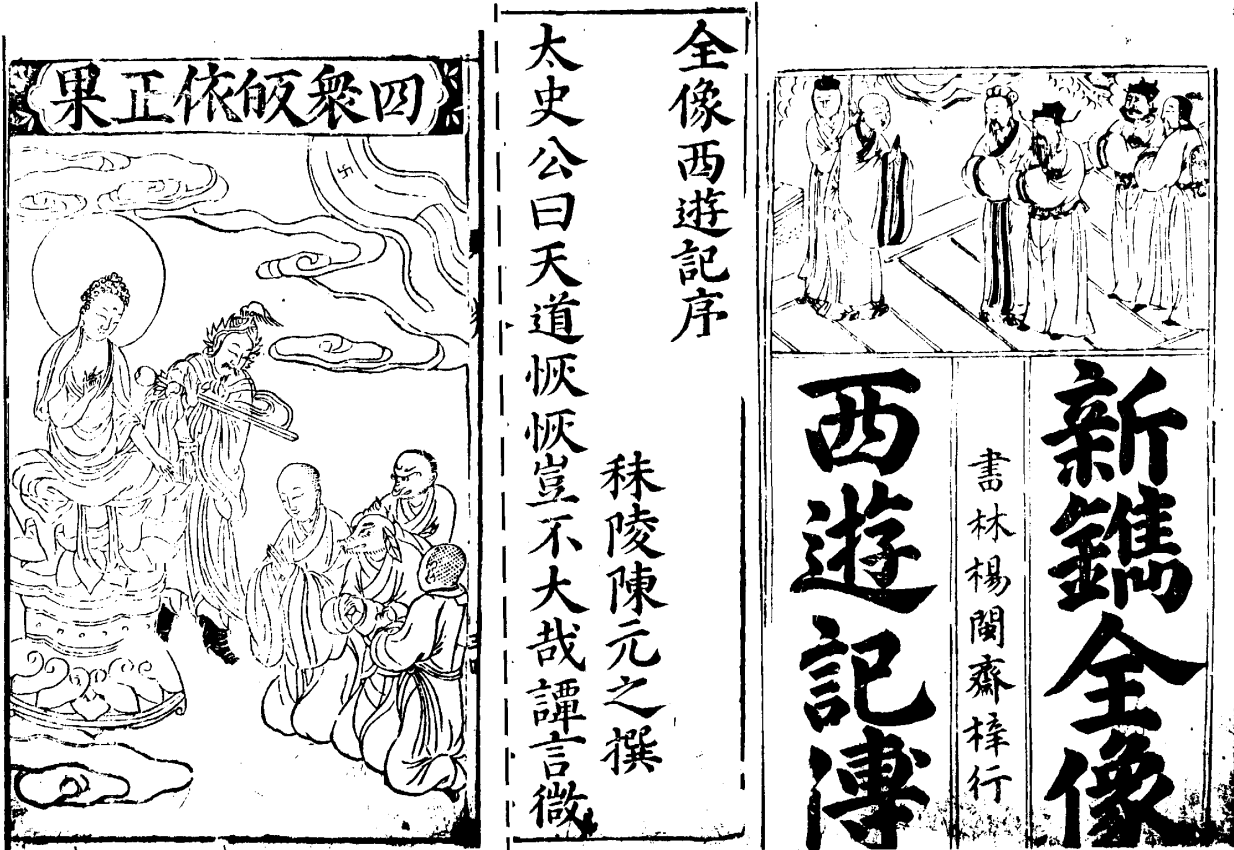 新鐫全像
書林楊閩齋梓行
西遊記傳
全像西遊記序
秣陵陳元之撰
太史公曰天道恢恢豈不大哉譚言微
四衆皈依正果